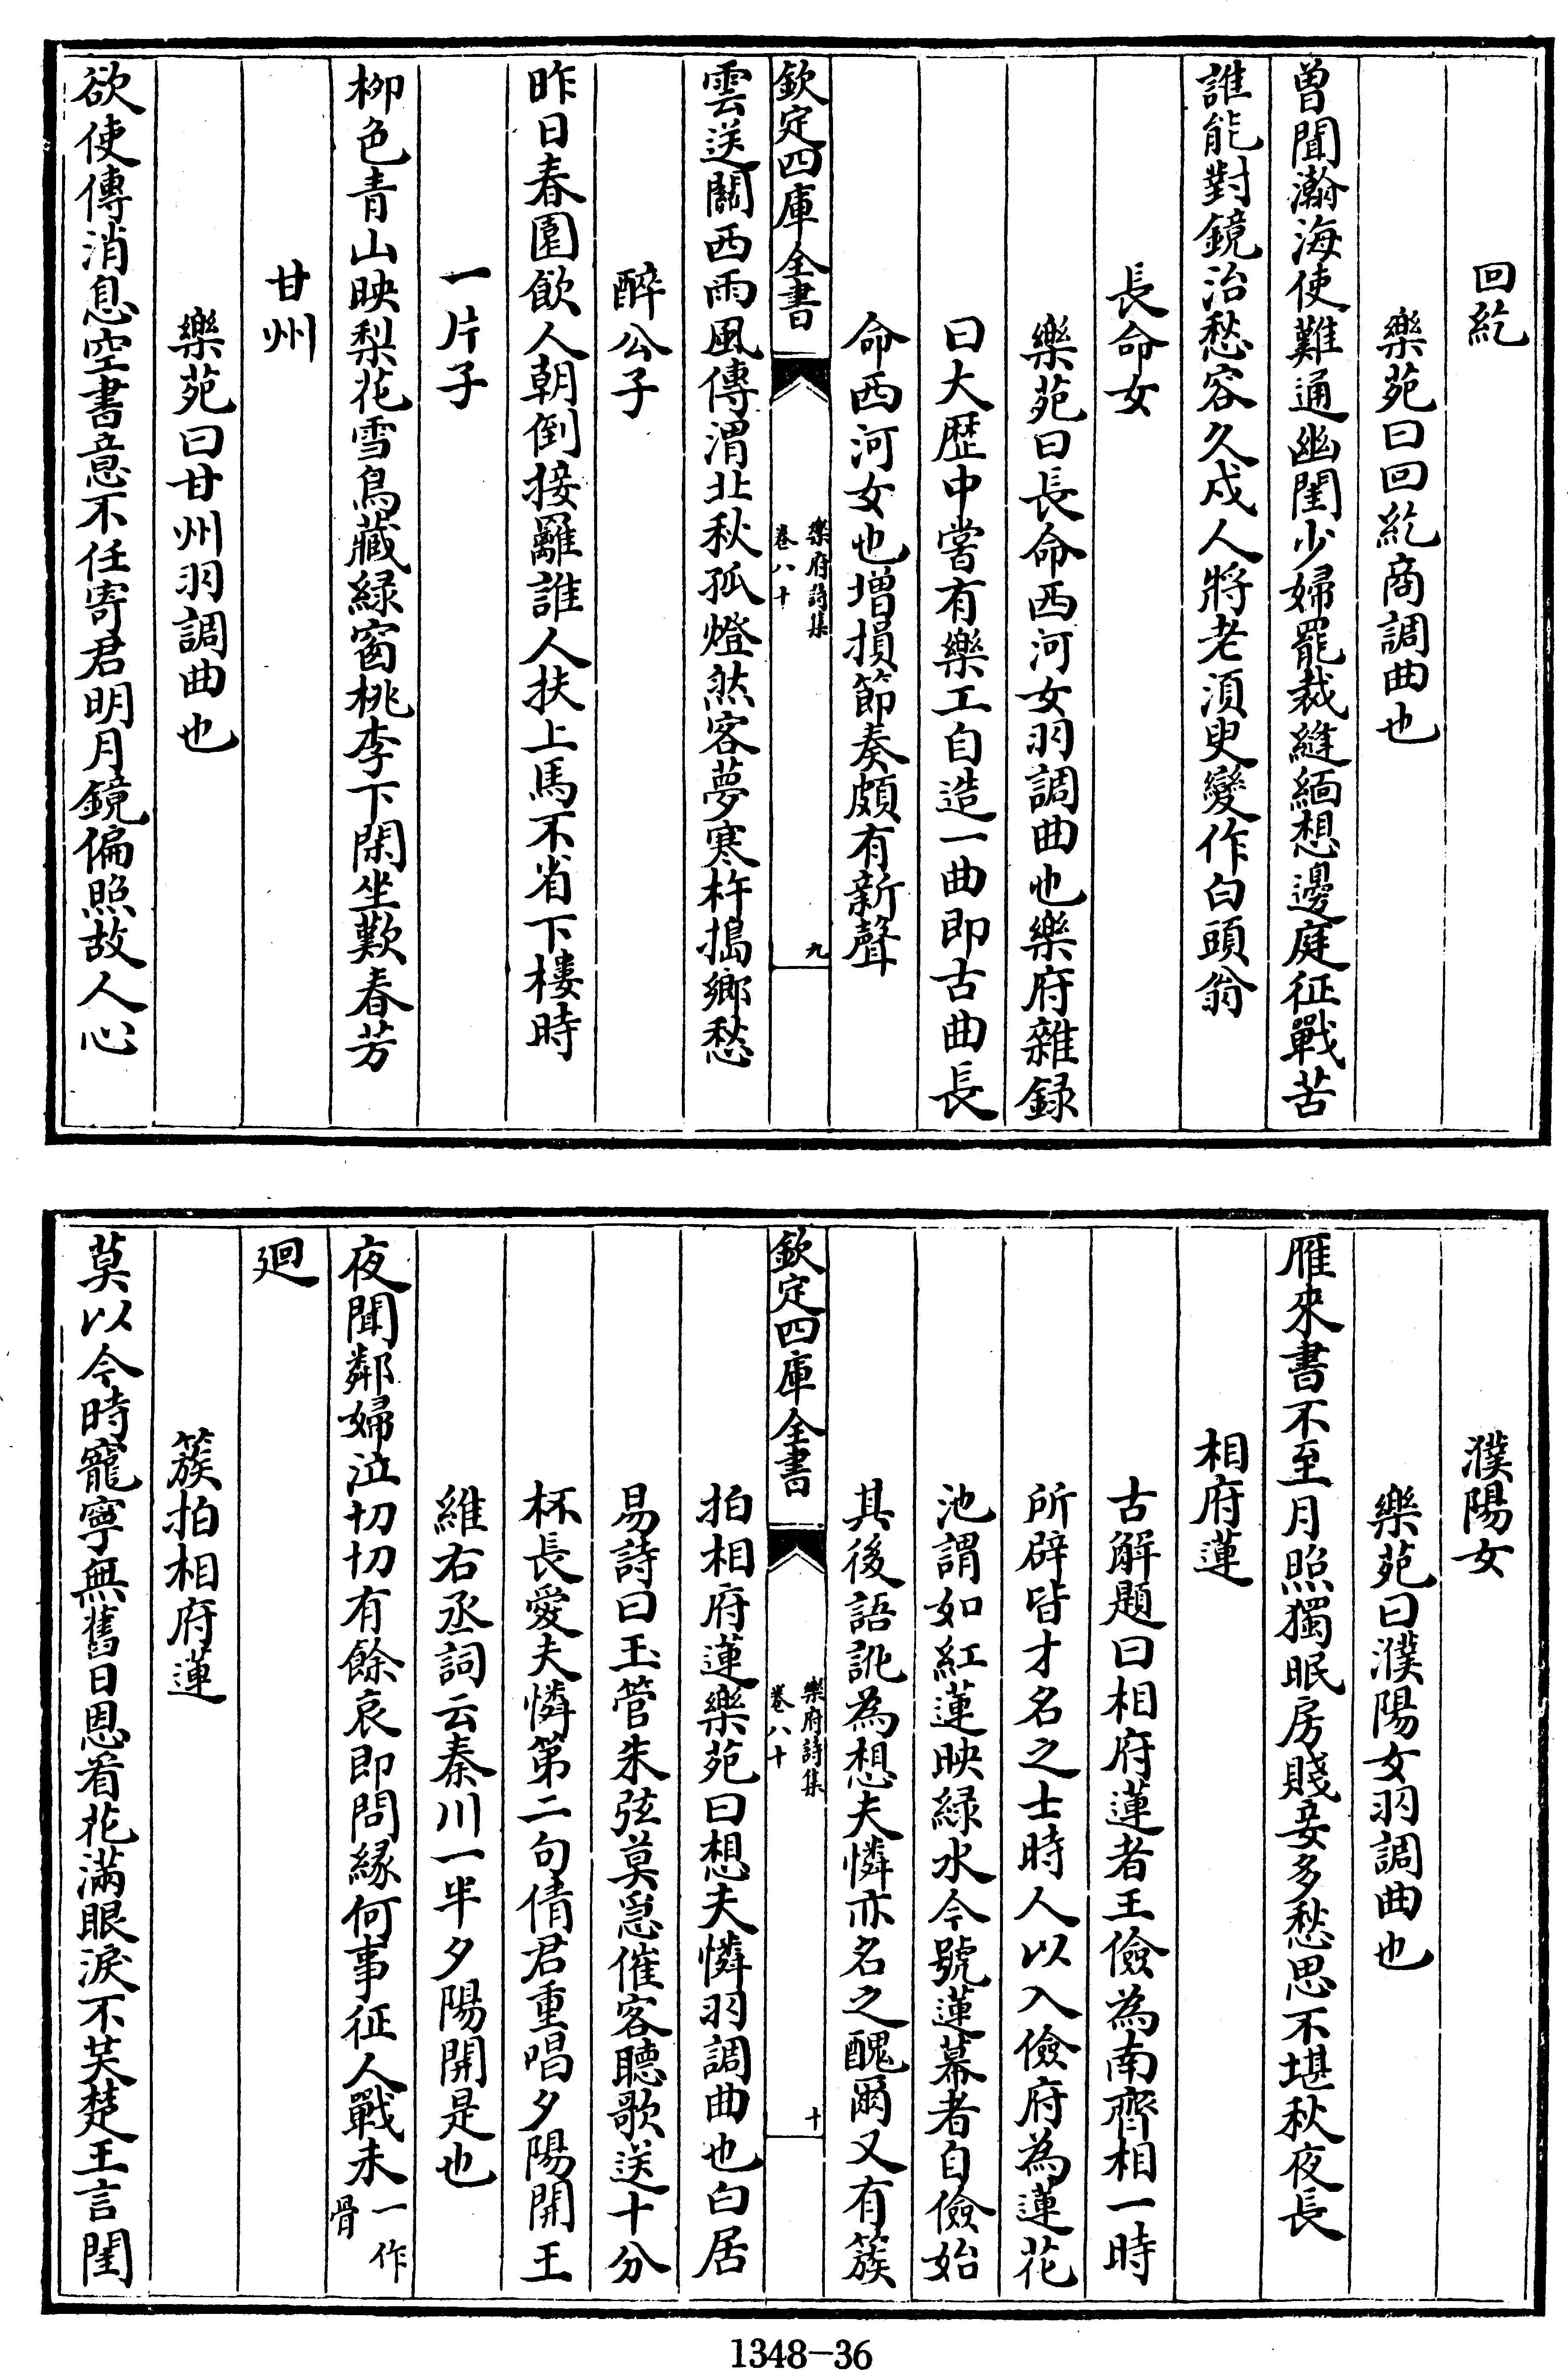 回紇
樂苑曰回紇商調曲也
曾聞瀚海使難通幽閨少婦罷裁縫緬想邊庭征戰苦
誰能對鏡治愁容久戍人將老須臾變作白頭翁
長命女
樂苑曰長命西河女羽調曲也樂府雜録
曰大歴中嘗有樂工自造一曲即古曲長
命西河女也増損節奏頗有新聲
欽定四庫全書
樂府詩集
卷八十
九
雲送關西雨風傳渭北秋孤燈然客夢寒杵搗鄉愁
醉公子
昨日春園飲人朝倒接䍦誰人扶上馬不省下樓時
一片子
柳色青山映梨花雪鳥藏緑窗桃李下閑坐歎春芳
甘州
樂苑曰甘州羽調曲也
欲使傳消息空書意不任寄君明月鏡偏照故人心
濮陽女
樂苑曰濮陽女羽調曲也
雁來書不至月照獨眠房賤妾多愁思不堪秋夜長
相府蓮
古解題曰相府蓮者王儉為南齊相一時
所辟皆才名之士時人以入儉府為蓮花
池謂如紅蓮映緑水今號蓮幕者自儉始
其後語訛為想夫憐亦名之醜爾又有簇
欽定四庫全書
樂府詩集
卷八十
十
拍相府蓮樂苑曰想夫憐羽調曲也白居
易詩曰玉管朱弦莫急催客聽歌送十分
杯長愛夫憐第二句倩君重唱夕陽開王
維右丞詞云秦川一半夕陽開是也
夜聞鄰婦泣切切有餘哀即問緣何事征人戰未一作骨
廻
簇拍相府蓮
莫以今時寵寧無舊日恩看花滿眼淚不共楚王言閨
1348-36